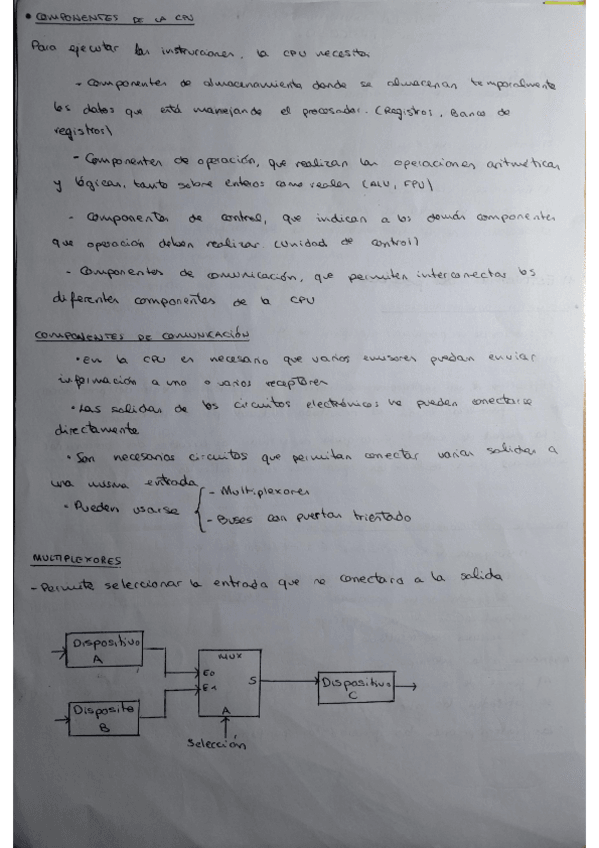 • COMPONENTES DE LA CPU
Para ejecutar las instrucciones, la CPU necesita
- Componentes de almacenamiento donde se almacenan temporalmente
los datos que está manejando el procesador. (Registros, Banco de
registros)
- Componentes de operación, que realizan las operaciones aritméticas
y lógicas, tanto sobre enteros como reales (ALU, FPU)
- Componentes de control, que indican a los demás componentes
que operación deben realizar. (Unidad de control)
- Componentes de comunicación, que permiten interconectar los
diferentes componentes de la CPU
COMPONENTES DE COMUNICACIÓN
• En la CPU es necesario que varios emisores puedan enviar
información a uno o varios receptores
• Las salidas de los circuitos electrónicos no pueden conectarse
directamente
• Son necesarios circuitos que permitan conectar varias salidas a
una misma entrada
• Pueden usarse
- Multiplexores
- Buses con puertas triestado
MULTIPLEXORES
- Permite seleccionar la entrada que se conectara a la salida
Dispositivo
A
Disposito
B
MUX
E0
E1
S
A
Selección
Dispositivo
C